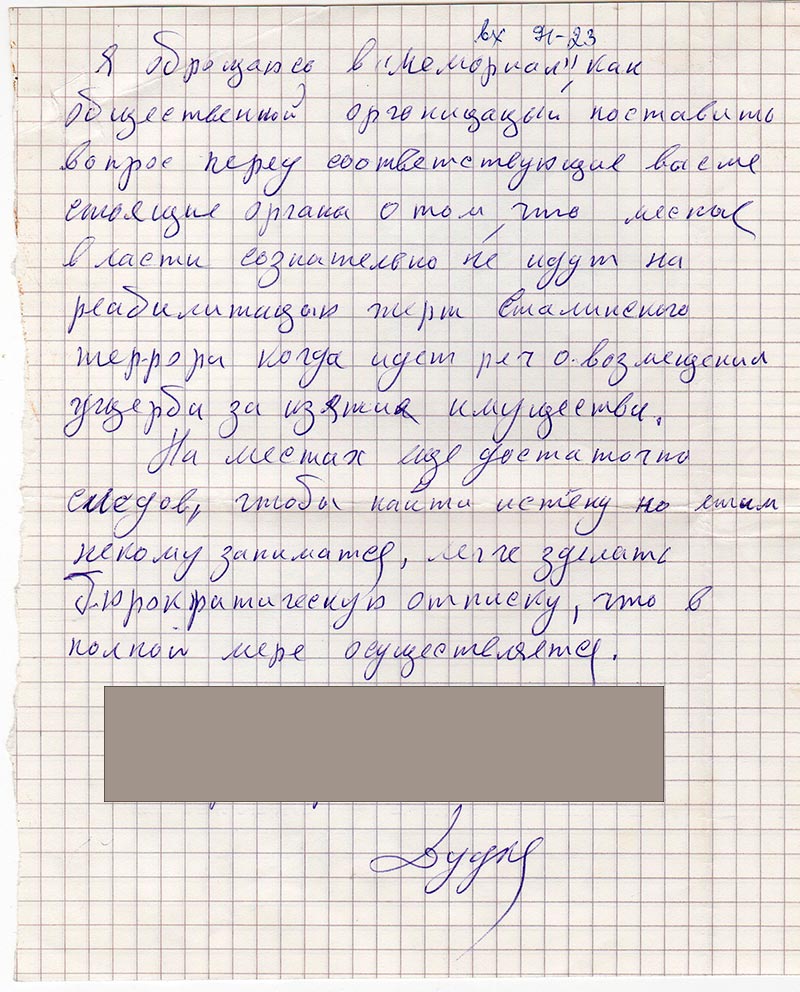 вх Я-23
Я обращаюсь в "Мемориал", как
общественной организации поставить
вопрос перед соответствующие высше
стоящие органа о том, что месные
власти сознательно не идут на
реабилитацыю жерт Сталинского
террора когда идет реч о возмещении
ущерба за изятия имущества.
На местах еще достаточно
следов, чтобы найти истену но етим
некому заниматся, легче зделать
бюрократическую отписку, что в
полной мере осуществляется.